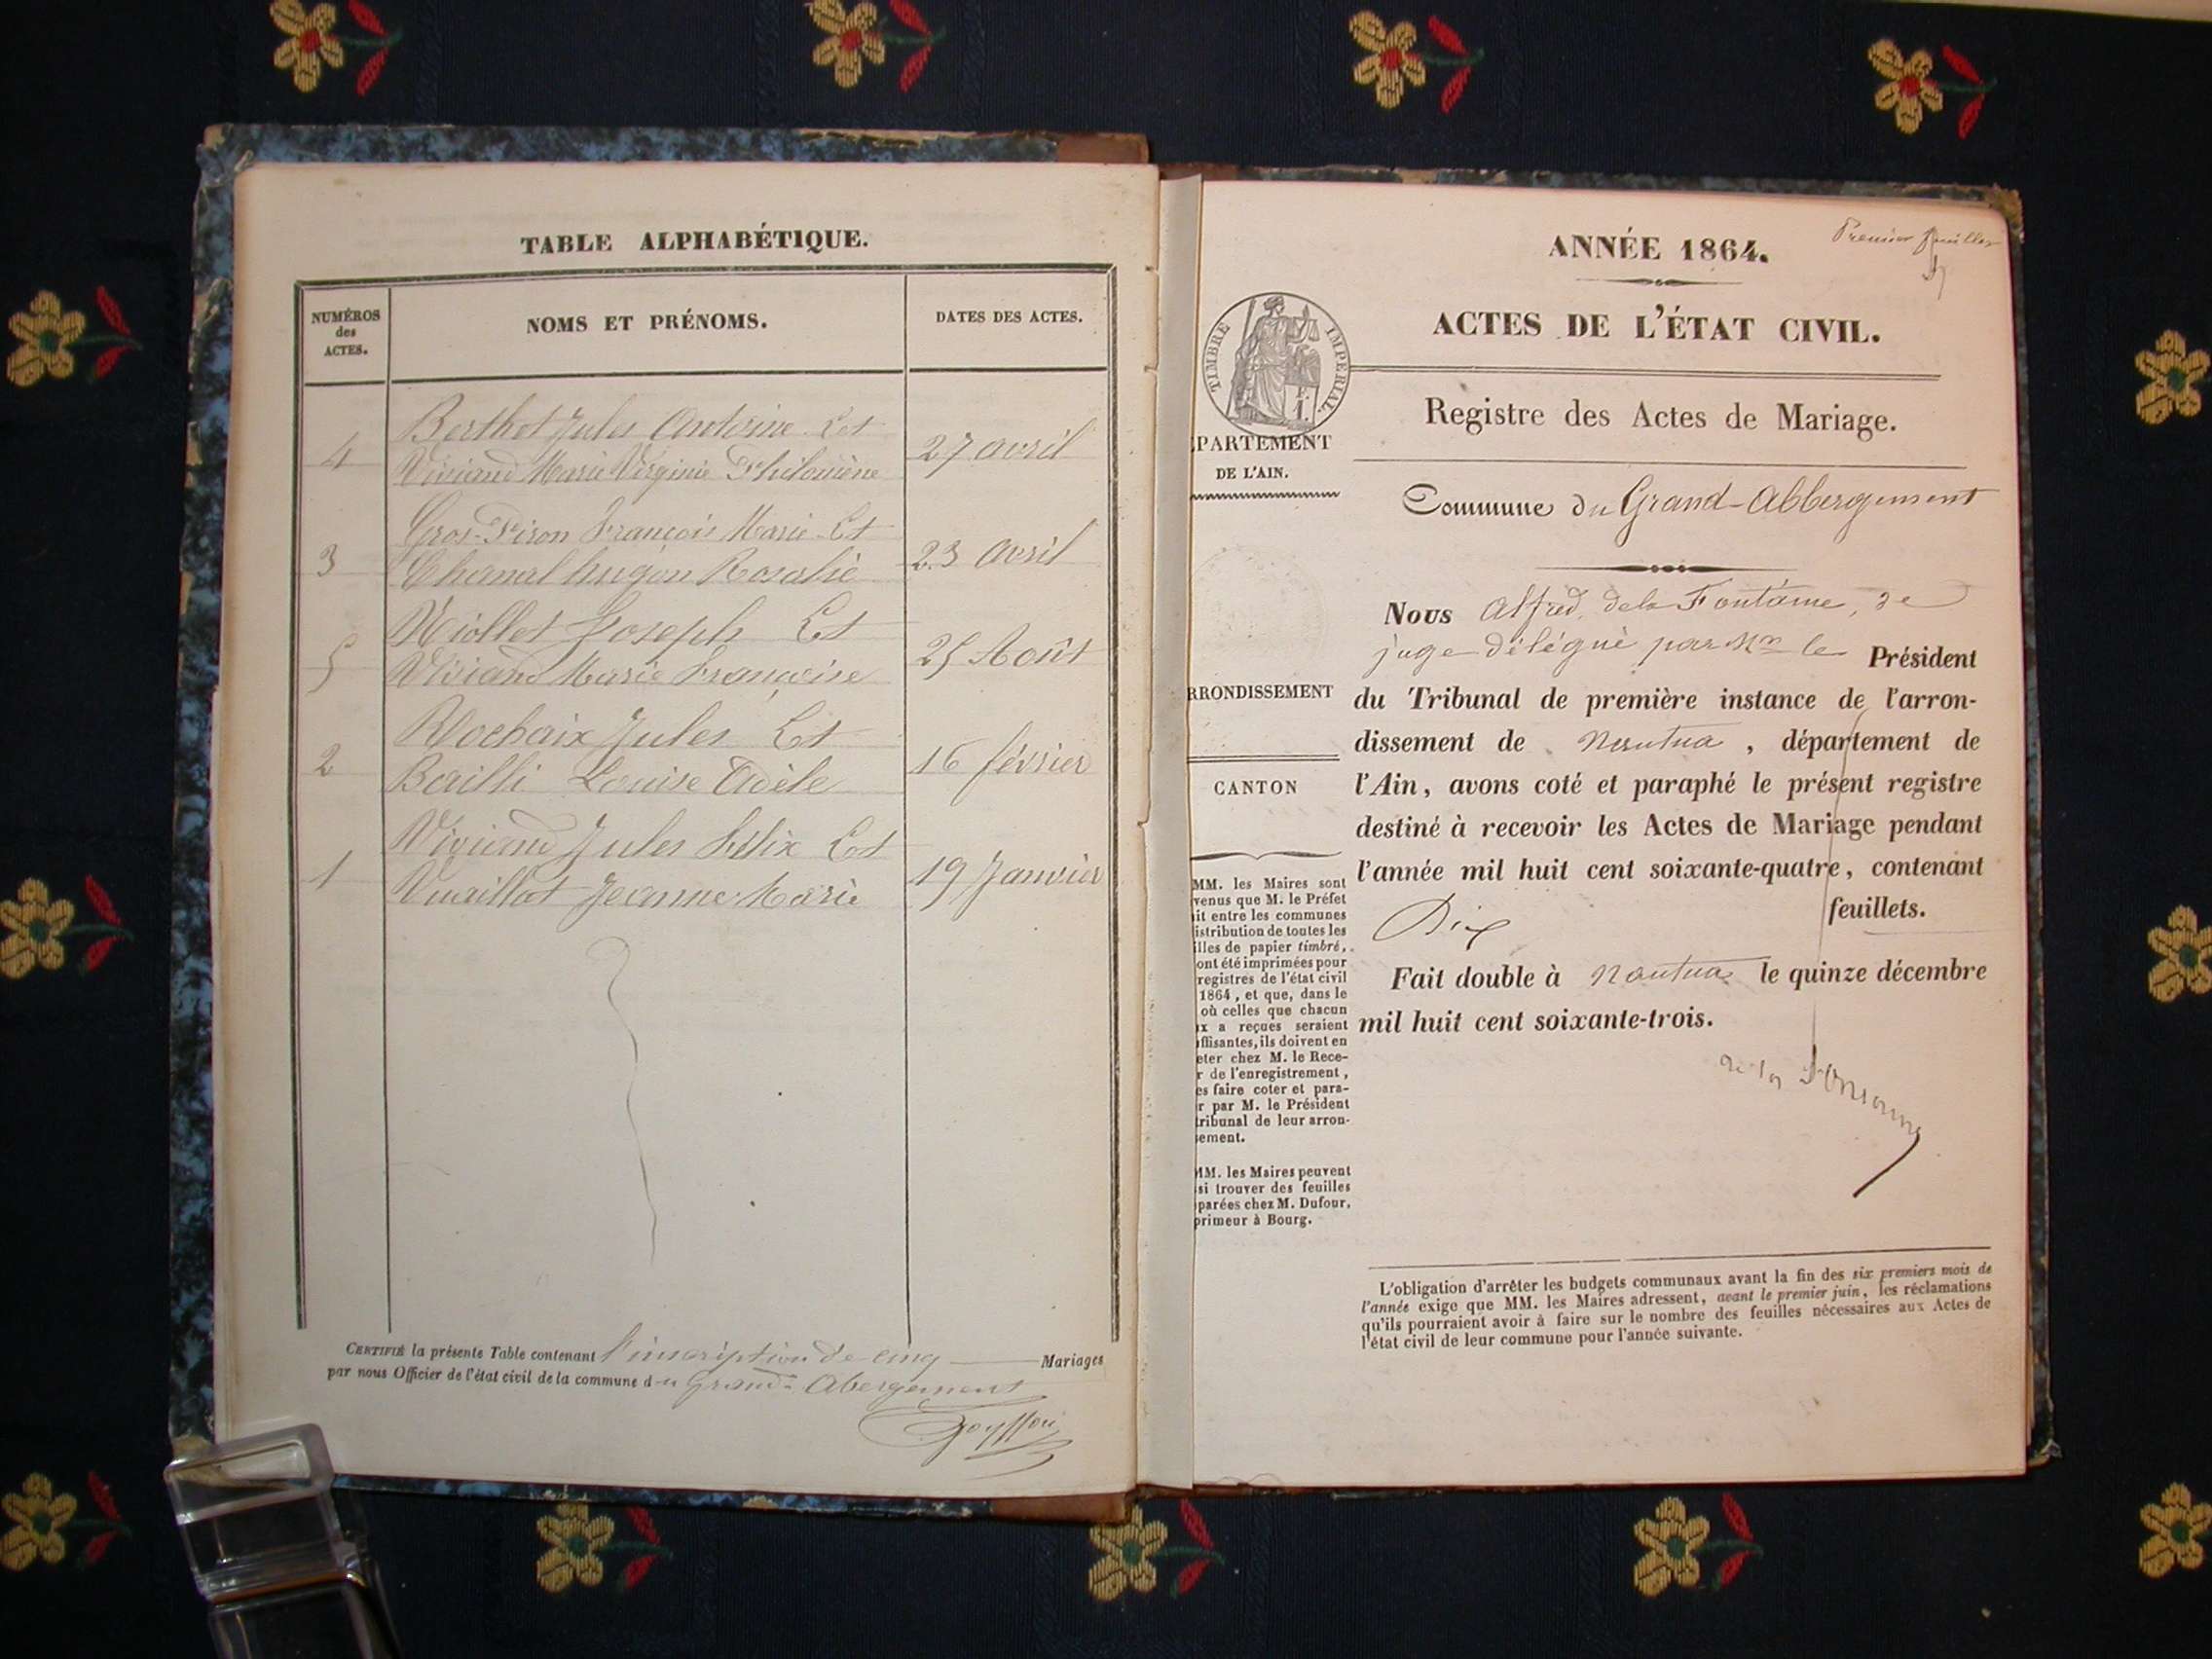 TABLE ALPHABÉTIQUE.
NUMÉROS
des
ACTES.
NOMS ET PRÉNOMS.
DATES DES ACTES.
Berthet Jules Antoine Et
4 Viviand Marie Virginie Philomène 27 avril
Gros-Piron François Marie Et
3 Chanal hugon Rosalie 23 avril
Miollet Joseph Et
5 Viviand Marie Françoise 25 Août
Rochaix Jules Et
2 Bailli Louise Adèle 16 février
Viviand Jules Félix Et
1 Vuaillat Jeanne Marie 19 Janvier
CERTIFIÉ la présente Table contenant l'inscription de cinq Mariages
par nous Officier de l'état civil de la commune du Grand-Abergement
Premier feuillet
ANNÉE 1864.
ACTES DE L'ÉTAT CIVIL.
TIMBRE IMPÉRIAL
Registre des Actes de Mariage.
PARTEMENT
DE L'AIN.
Commune du Grand-Abbergement
Nous Alfred dela Fontaine,
juge délégué par Mr le Président
RRONDISSEMENT
du Tribunal de première instance de l'arron-
dissement de Nantua, département de
CANTON
l'Ain, avons coté et paraphé le présent registre
destiné à recevoir les Actes de Mariage pendant
l'année mil huit cent soixante-quatre, contenant
Dix feuillets.
Fait double à Nantua le quinze décembre
mil huit cent soixante-trois.
de la Fontaine
MM. les Maires sont
venus que M. le Préfet
it entre les communes
istribution de toutes les
illes de papier timbré,
ont été imprimées pour
registres de l'état civil
1864, et que, dans le
où celles que chacun
x a reçues seraient
ffisantes, ils doivent en
eter chez M. le Rece-
r de l'enregistrement,
es faire coter et para-
r par M. le Président
tribunal de leur arron-
sement.
MM. les Maires peuvent
si trouver des feuilles
parées chez M. Dufour,
primeur à Bourg.
L'obligation d'arrêter les budgets communaux avant la fin des six premiers mois de
l'année exige que MM. les Maires adressent, avant le premier juin, les réclamations
qu'ils pourraient avoir à faire sur le nombre des feuilles nécessaires aux Actes de
l'état civil de leur commune pour l'année suivante.